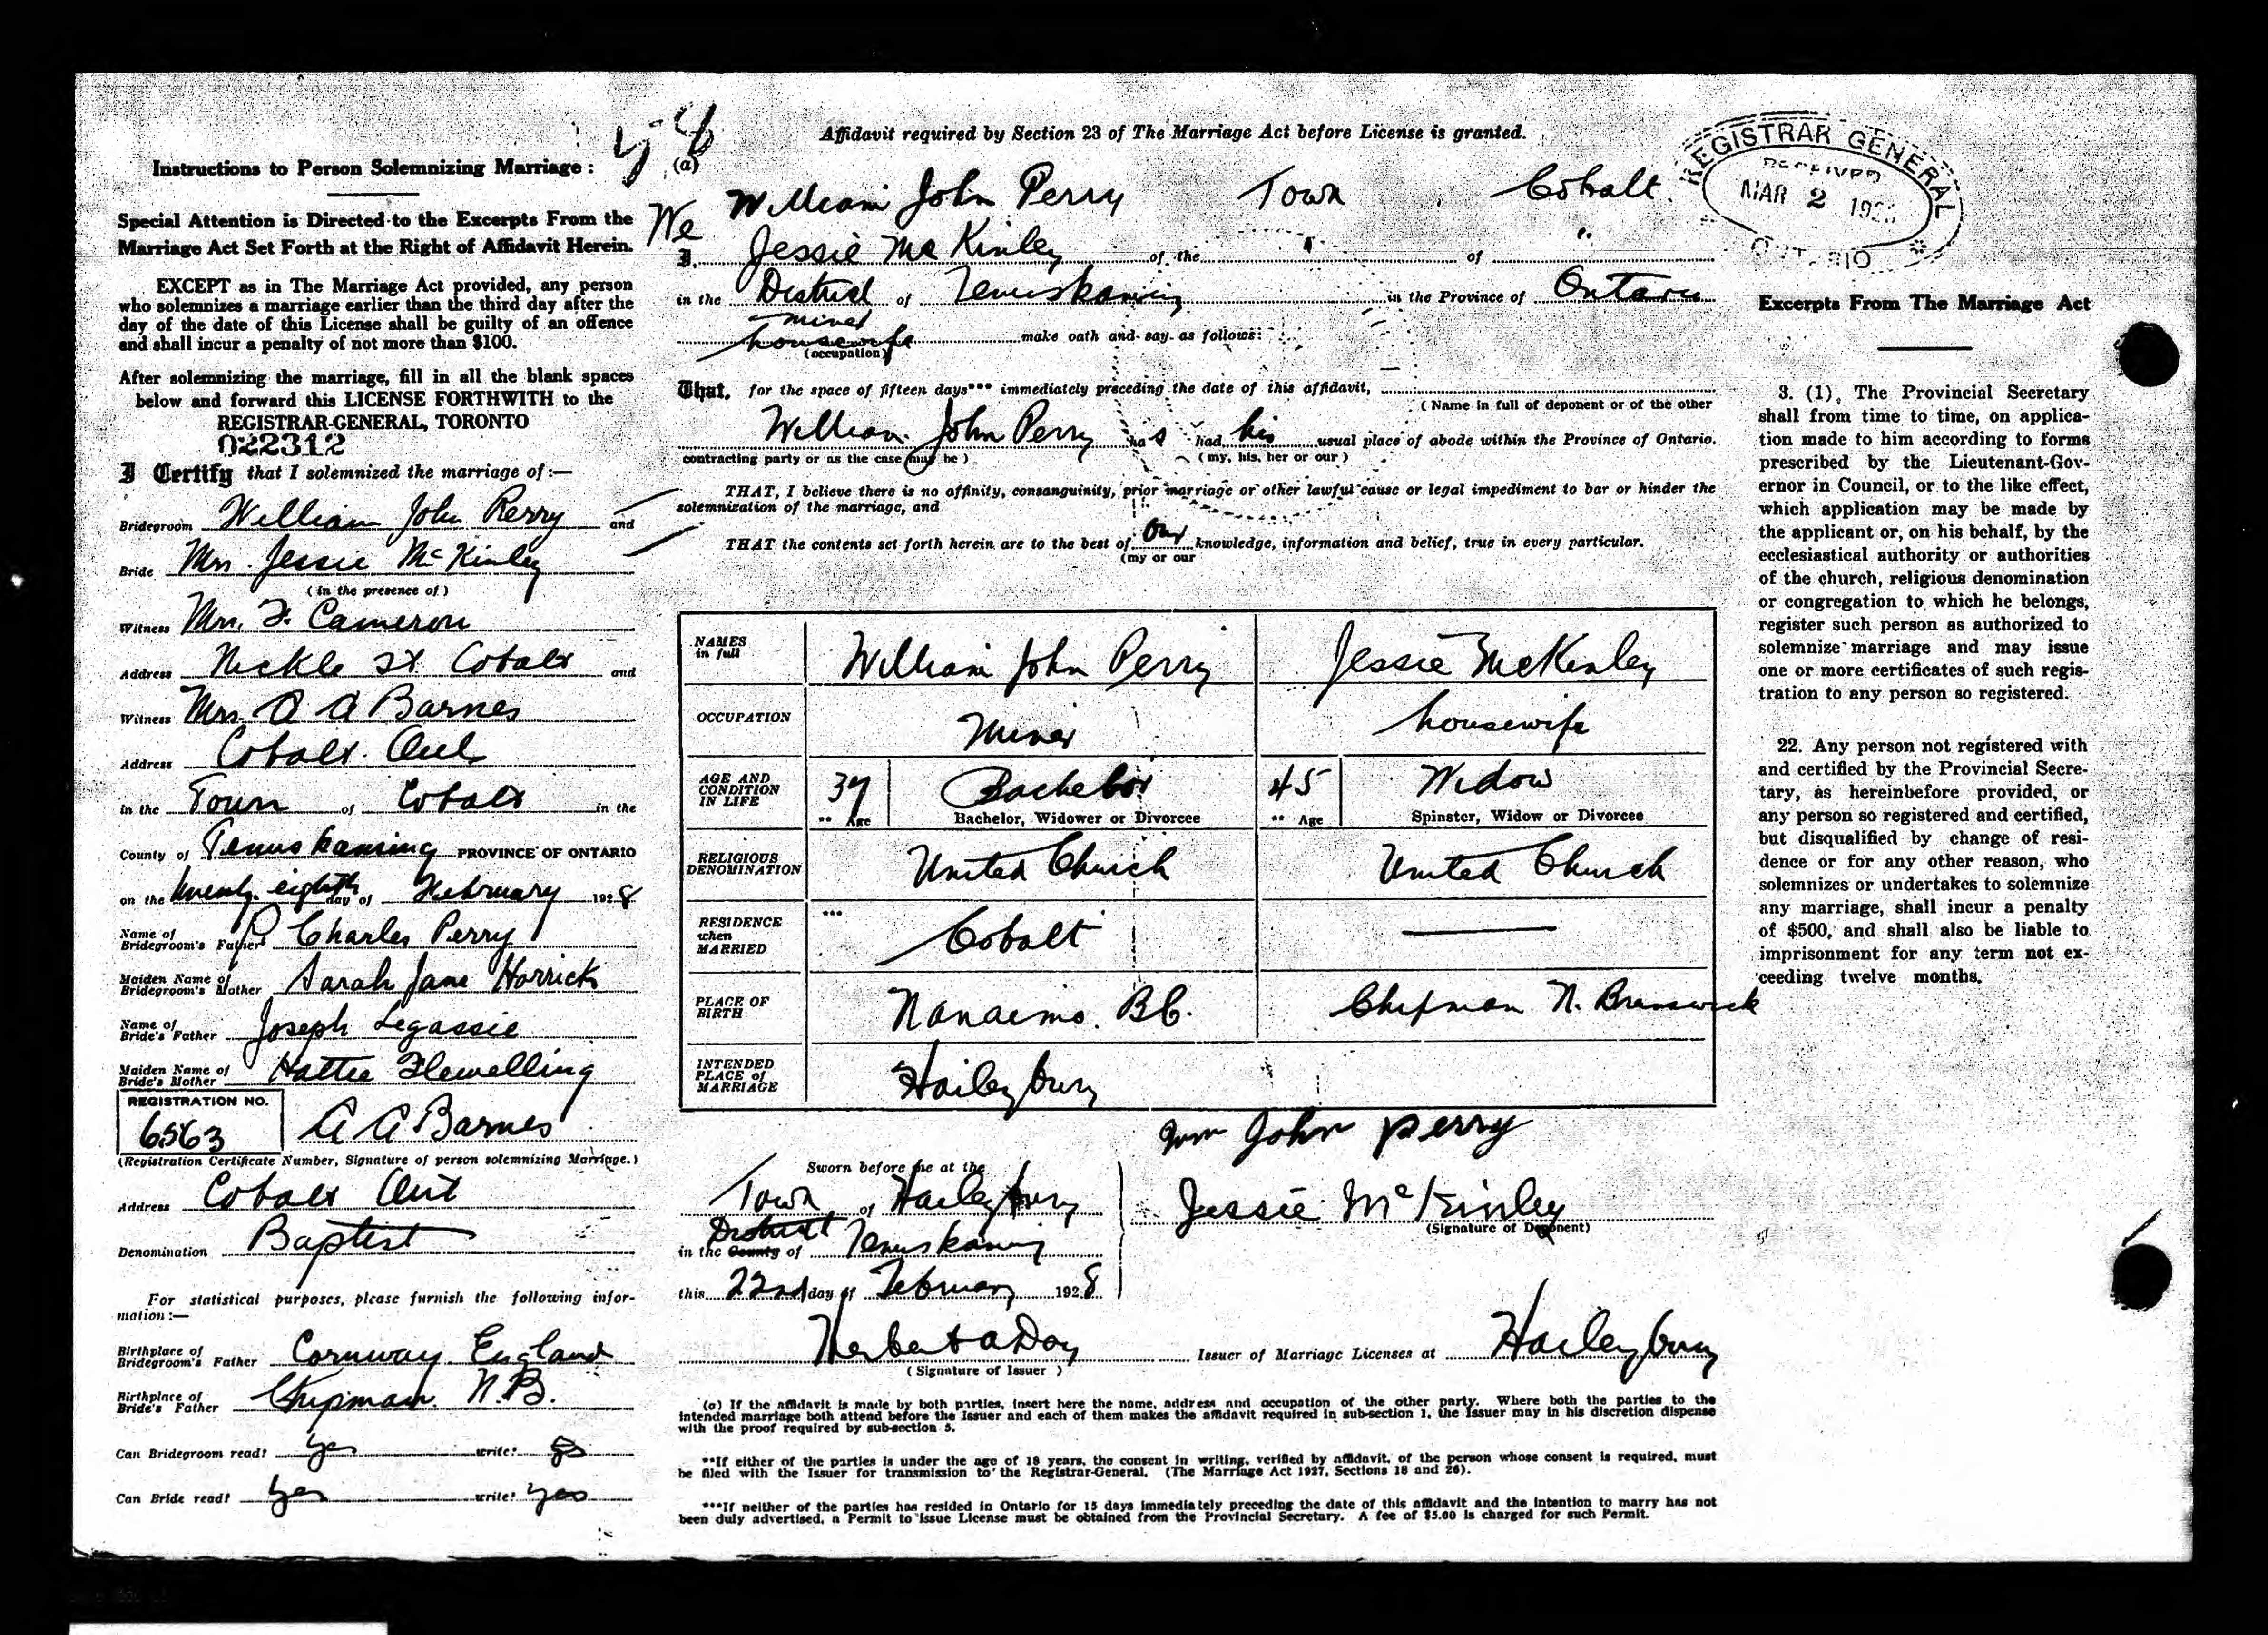 Instructions to Person Solemnizing Marriage :
Special Attention is Directed to the Excerpts From the
Marriage Act Set Forth at the Right of Affidavit Herein.
EXCEPT as in The Marriage Act provided, any person
who solemnizes a marriage earlier than the third day after the
day of the date of this License shall be guilty of an offence
and shall incur a penalty of not more than $100.
After solemnizing the marriage, fill in all the blank spaces
below and forward this LICENSE FORTHWITH to the
REGISTRAR-GENERAL, TORONTO
022312
I Certify that I solemnized the marriage of :—
Bridegroom William John Perry and
Bride Mrs. Jessie McKinley
(in the presence of)
Witness Mrs. F. Cameron
Address Nickle St Cobalt and
Witness Mrs. A A Barnes
Address Cobalt Ont
in the Town of Cobalt in the
County of Temiskaming PROVINCE OF ONTARIO
on the twenty eighth day of February 1928
Name of Bridegroom's Father Charles Perry
Maiden Name of Bridegroom's Mother Sarah Jane Horrick
Name of Bride's Father Joseph Legassie
Maiden Name of Bride's Mother Hattie Flewelling
REGISTRATION NO.
6563 A A Barnes
(Registration Certificate Number, Signature of person solemnizing Marriage.)
Address Cobalt Ont
Denomination Baptist
For statistical purposes, please furnish the following infor-
mation :—
Birthplace of Bridegroom's Father Cornway England
Birthplace of Bride's Father Chipman N.B.
Can Bridegroom read? yes write? yes
Can Bride read? yes write? yes
Affidavit required by Section 23 of The Marriage Act before License is granted.
(a)
William John Perry Town Cobalt.
We
I, Jessie McKinley of the " of "
in the District of Temiskaming in the Province of Ontario
miner
housewife make oath and say as follows:
(occupation)
That, for the space of fifteen days*** immediately preceding the date of this affidavit,
(Name in full of deponent or of the other
William John Perry has had his usual place of abode within the Province of Ontario.
contracting party or as the case may be) (my, his, her or our)
THAT, I believe there is no affinity, consanguinity, prior marriage or other lawful cause or legal impediment to bar or hinder the
solemnization of the marriage, and
THAT the contents set forth herein are to the best of our knowledge, information and belief, true in every particular.
(my or our
NAMES in full William John Perry Jessie McKinley
OCCUPATION Miner housewife
AGE AND CONDITION IN LIFE 37 Bachelor 45 Widow
** Age Bachelor, Widower or Divorcee ** Age Spinster, Widow or Divorcee
RELIGIOUS DENOMINATION United Church United Church
RESIDENCE when MARRIED *** Cobalt —
PLACE OF BIRTH Nanaimo. B.C. Chipman N. Brunswick
INTENDED PLACE of MARRIAGE Haileybury
Wm John Perry
Sworn before me at the
Town of Haileybury
Jessie McKinley
(Signature of Deponent)
District
in the County of Temiskaming
this 22nd day of February 1928
Herbert A Day Issuer of Marriage Licenses at Haileybury
(Signature of Issuer)
(a) If the affidavit is made by both parties, insert here the name, address and occupation of the other party. Where both the parties to the
intended marriage both attend before the Issuer and each of them makes the affidavit required in sub-section 1, the Issuer may in his discretion dispense
with the proof required by sub-section 5.
**If either of the parties is under the age of 18 years, the consent in writing, verified by affidavit, of the person whose consent is required, must
be filed with the Issuer for transmission to the Registrar-General. (The Marriage Act 1927, Sections 18 and 26).
***If neither of the parties has resided in Ontario for 15 days immediately preceding the date of this affidavit and the intention to marry has not
been duly advertised, a Permit to issue License must be obtained from the Provincial Secretary. A fee of $5.00 is charged for such Permit.
REGISTRAR GENERAL
RECEIVED
MAR 2
ONTARIO
Excerpts From The Marriage Act
3. (1). The Provincial Secretary
shall from time to time, on applica-
tion made to him according to forms
prescribed by the Lieutenant-Gov-
ernor in Council, or to the like effect,
which application may be made by
the applicant or, on his behalf, by the
ecclesiastical authority or authorities
of the church, religious denomination
or congregation to which he belongs,
register such person as authorized to
solemnize marriage and may issue
one or more certificates of such regis-
tration to any person so registered.
22. Any person not registered with
and certified by the Provincial Secre-
tary, as hereinbefore provided, or
any person so registered and certified,
but disqualified by change of resi-
dence or for any other reason, who
solemnizes or undertakes to solemnize
any marriage, shall incur a penalty
of $500, and shall also be liable to
imprisonment for any term not ex-
ceeding twelve months.